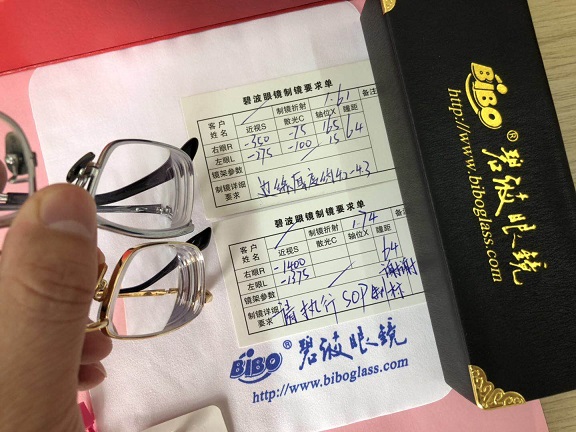 碧波眼镜制镜要求单
客户姓名 制镜折射 1.61 备注
近视S 散光C 轴位X 瞳距
右眼R -350 -75 165 64
左眼L -275 -100 15
镜架参数
制镜详细要求
碧波眼镜制镜要求单
客户姓名 制镜折射 1.74 备注
近视S 散光C 轴位X 瞳距
右眼R -1400 64
左眼L -1375
镜架参数 谢谢
制镜详细要求 请执行SOP制标
BiBO ® 碧波眼镜
http://www.biboglass.com
BiBO ® 碧波眼镜
http://www.biboglass.com